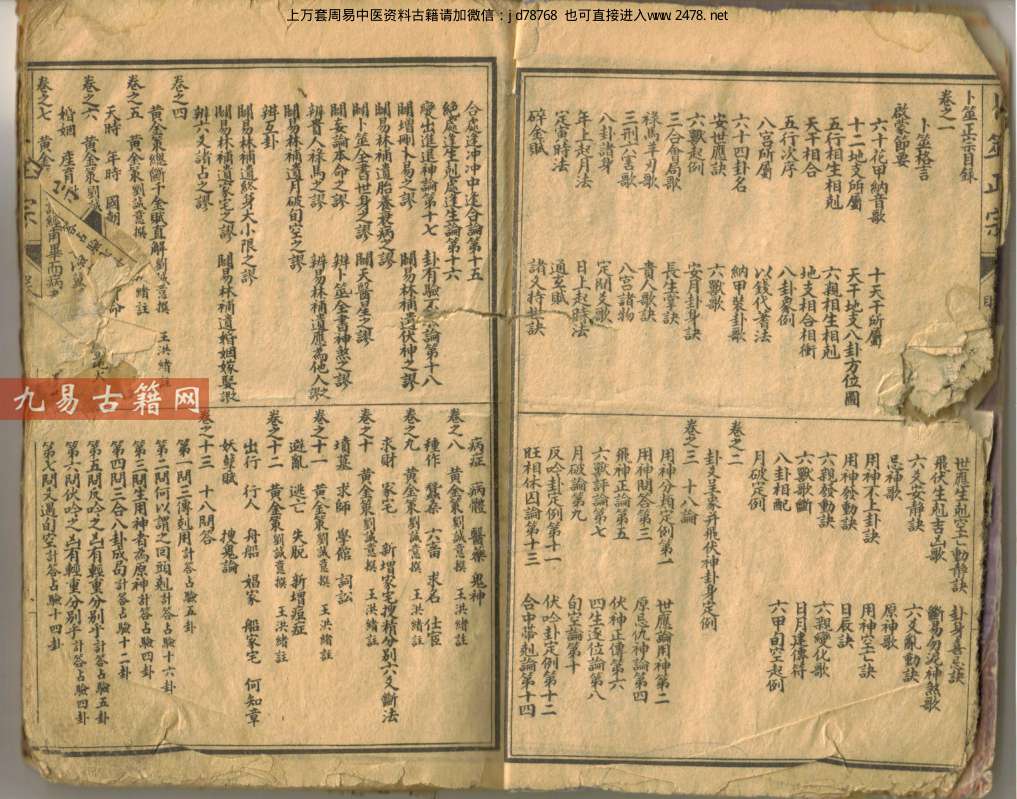 上万套周易中医资料古籍请加微信：jd78768 也可直接进入www.2478.net
卜筮正宗目録
卷之一
卜筮格言
啟蒙節要
六十花甲納音歌 十天干所屬
十二地支所屬 天干地支八卦方位圖
五行相生相剋 六親相生相剋
天干相合 地支相合相衝
五行次序 八卦象例
八宮所屬 以錢代蓍法
六十四卦名 納甲裝卦歌
安世應訣 六獸歌
六獸起例 安月卦身訣
三合會局歌 長生掌訣
祿馬羊刃歌 貴人歌訣
三刑六害歌 八宮諸物
八卦諸身 定間爻歌
年上起月法 日上起時法
定寅時法 通玄賦
碎金賦 諸爻持世訣
世應生剋空亡動靜訣 卦身喜忌訣
飛伏生剋吉凶歌 斷易勿泥神煞歌
六爻安靜訣 六爻亂動訣
忌神歌 原神歌
用神不上卦訣 用神空亡訣
用神發動訣 日辰訣
六親發動訣 六親變化歌
六獸歌斷 日月建傳符
八卦相配 六甲旬空起例
月破定例
卷之二
卦爻呈象并飛伏神卦身定例
卷之三 十八論
用神分類定例第一 世應論用神第二
用神問答第三 原忌仇神論第四
飛神正論第五 伏神正傳第六
六獸評論第七 四生逐位論第八
月破論第九 旬空論第十
反吟卦定例第十一 伏吟卦定例第十二
旺相休囚論第十三 合中帶剋論第十四
合處逢沖沖中逢合論第十五
絕處逢生剋處逢生論第十六
變出進退神論第十七 卦有驗不驗論第十八
闢增刪卜易之謬
闢易林補遺胎養衰病之謬 闢易林補遺伏神之謬
闢卜筮全書世身之謬 闢天醫星之謬
闢妄論本命之謬 辨卜筮全書神煞之謬
辨貴人祿馬之謬 辨易林補遺應爲他人之謬
闢易林補遺月破旬空之謬
辨互卦
闢易林補遺終身大小限之謬
闢易林補遺家宅之謬 闢易林補遺婚姻嫁娶之謬
辨六爻諸占之謬
卷之四
黃金策總斷千金賦直解 劉誠意撰 王洪緒
卷之五 黃金策劉誠意撰 緒註
天時 年時 國朝
卷之六 黃金策劉誠意
婚姻 產育
卷之七 黃金
病症 病體 醫藥 鬼神
卷之八 黃金策劉誠意撰 王洪緒註
種作 蠶桑 六畜 求名 仕宦
卷之九 黃金策劉誠意撰 王洪緒註
求財 家宅 新增家宅搜精分别六爻斷法
卷之十 黃金策劉誠意撰 王洪緒註
墳墓 求師 學館 詞訟
卷之十一 黃金策劉誠意撰 王洪緒註
避亂 逃亡 失脫 新增痘症
卷之十二 黃金策劉誠意撰 王洪緒註
出行 行人 舟船 娼家 船家宅 何知章
妖孽賦 搜鬼論
卷之十三 十八問答
第一問三傳剋用計答占驗五卦
第二問何以謂之回頭剋計答占驗十六卦
第三問生用神者為原神計答占驗四卦
第四問三合八卦成局計答占驗十二卦
第五問反吟之凶有輕重分别乎計答占驗五卦
第六問伏吟之凶有輕重分别乎計答占驗四卦
第七問爻遇旬空計答占驗十四卦
九易古籍网